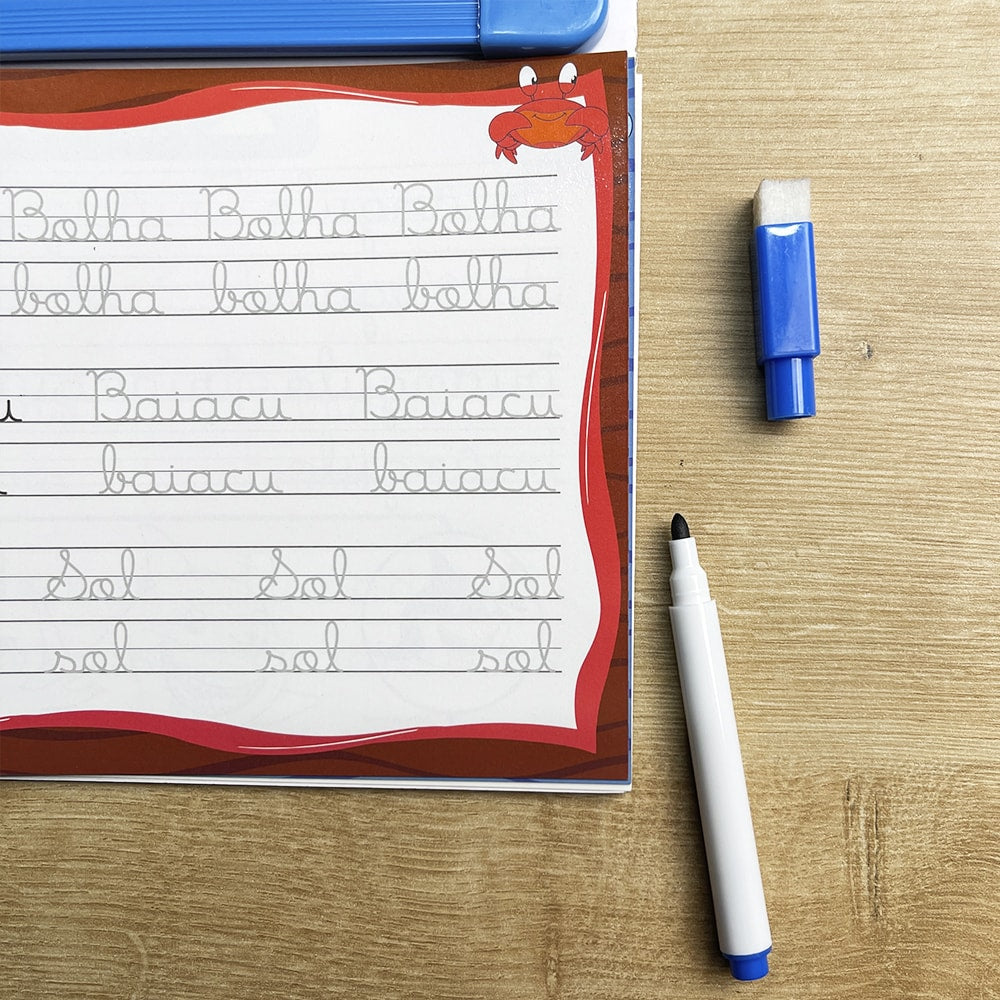 Bolha Bolha Bolha
bolha bolha bolha
Baiacu Baiacu
baiacu baiacu
Sol Sol Sol
sol sol sol